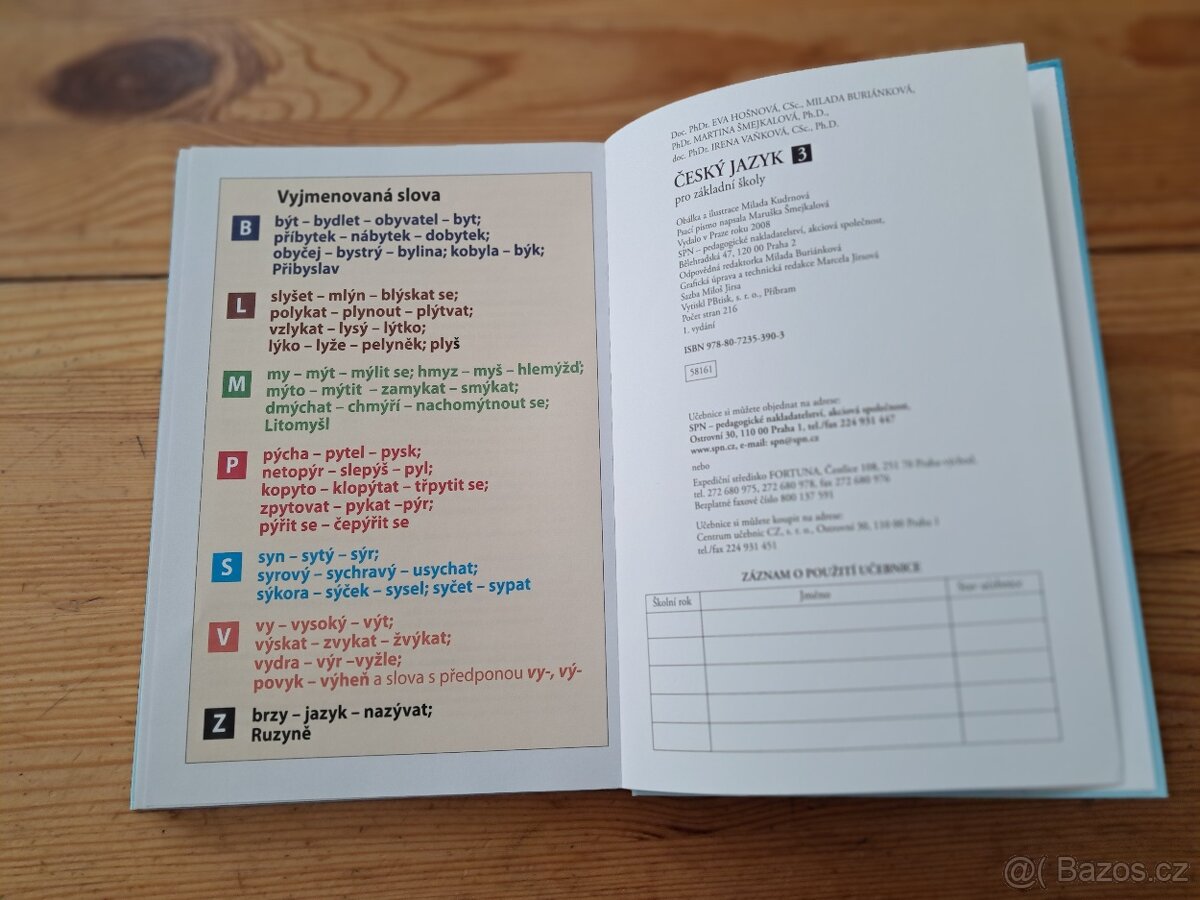 Vyjmenovaná slova
B
být – bydlet – obyvatel – byt;
příbytek – nábytek – dobytek;
obyčej – bystrý – bylina; kobyla – býk;
Přibyslav
L
slyšet – mlýn – blýskat se;
polykat – plynout – plýtvat;
vzlykat – lysý – lýtko;
lýko – lyže – pelyněk; plyš
M
my – mýt – mýlit se; hmyz – myš – hlemýžď;
mýto – mýtit – zamykat – smýkat;
dmýchat – chmýří – nachomýtnout se;
Litomyšl
P
pýcha – pytel – pysk;
netopýr – slepýš – pyl;
kopyto – klopýtat – třpytit se;
zpytovat – pykat –pýr;
pýřit se – čepýřit se
S
syn – sytý – sýr;
syrový – sychravý – usychat;
sýkora – sýček – sysel; syčet – sypat
V
vy – vysoký – výt;
výskat – zvykat – žvýkat;
vydra – výr –vyžle;
povyk – výheň a slova s předponou vy-, vý-
Z
brzy – jazyk – nazývat;
Ruzyně
Doc. PhDr. EVA HOŠNOVÁ, CSc., MILADA BURIÁNKOVÁ,
PhDr. MARTINA ŠMEJKALOVÁ, Ph.D.,
doc. PhDr. IRENA VAŇKOVÁ, CSc., Ph.D.
ČESKÝ JAZYK 3
pro základní školy
Obálka a ilustrace Milada Kudrnová
Psací písmo napsala Maruška Šmejkalová
Vydalo v Praze roku 2008
SPN – pedagogické nakladatelství, akciová společnost,
Bělehradská 47, 120 00 Praha 2
Odpovědná redaktorka Milada Buriánková
Grafická úprava a technická redakce Marcela Jirsová
Sazba Miloš Jirsa
Vytiskl PBtisk, s. r. o., Příbram
Počet stran 216
1. vydání
ISBN 978-80-7235-390-3
58161
Učebnice si můžete objednat na adrese:
SPN – pedagogické nakladatelství, akciová společnost,
Ostrovní 30, 110 00 Praha 1, tel./fax 224 931 447
www.spn.cz, e-mail: spn@spn.cz
nebo
Expediční středisko FORTUNA, Čestlice 108, 251 70 Praha-východ,
tel. 272 680 975, 272 680 978, fax 272 680 976
Bezplatné faxové číslo 800 137 591
Učebnice si můžete koupit na adrese:
Centrum učebnic CZ, s. r. o., Ostrovní 30, 110 00 Praha 1
tel./fax 224 931 451
ZÁZNAM O POUŽITÍ UČEBNICE
Školní rok
Jméno
Stav učebnice
@( Bazos.cz